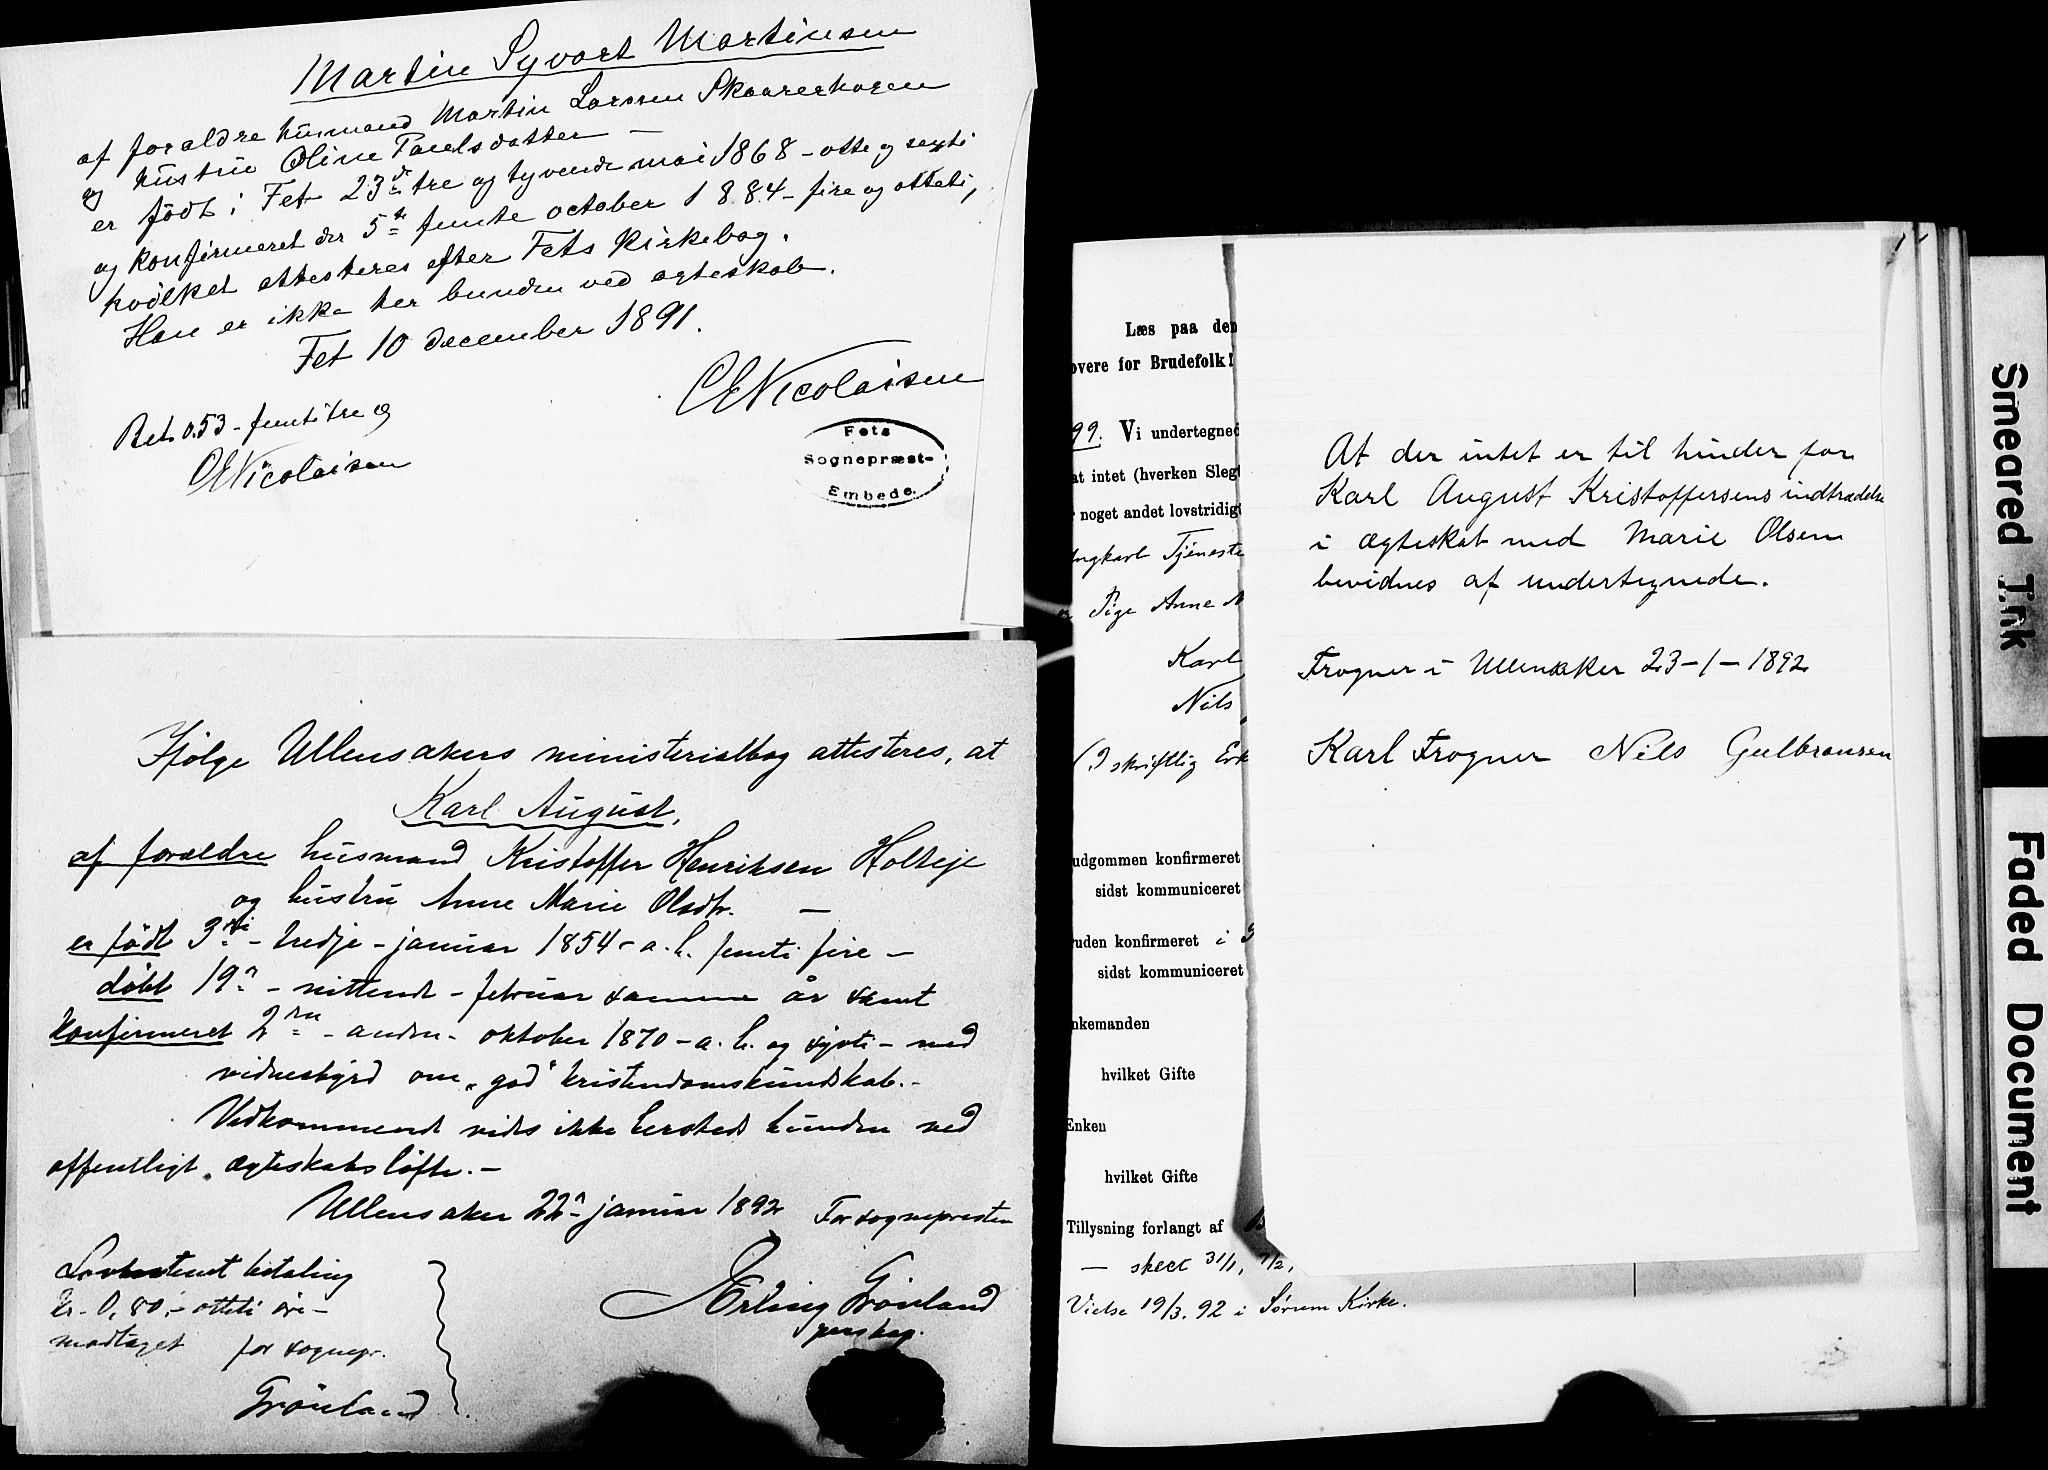 Martin Syvart Martinsen
af forældre husmand Martin Larsen Skaarerhagen
og hustru Oline Paulsdatter —
er født i Fet 23de tre og tyvende mai 1868 - otte og sexti
og konfirmeret der 5te femte october 1884 - fire og otteti,
hvilket attesteres efter Fets Kirkebog.
Han er ikke her bunden ved ægteskab.
Fet 10 december 1891.
CENicolaisen
Bet. 0.53 - femtitre ø
CENicolaisen
Fets
Sognepræst-
Embede.
Ifølge Ullensakers ministerialbog attesteres, at
Karl August,
af forældre husmand Kristoffer Henriksen Holteje
og hustru Anne Marie Olsdtr. —
er født 3die - tredje - januar 1854 - a. h. femti fire -
døbt 19n - nittende - februar samme år samt
konfirmeret 2den - anden - oktober 1870 - a. h. og sytti - med
vidnesbyrd om "god" kristendomskundskab. -
Vedkommende vides ikke hersteds bunden ved
offentligt ægteskabsløfte. -
Ullensaker 22n januar 1892 For sognepresten
Erling Grönland
pers. kap.
Lovbestemt betaling
kr. 0,80, - otteti øre -
modtaget for sognepr.
Grönland
Læs paa den
overe for Brudefolk!
99. Vi undertegned
at intet (hverken Slegt
noget andet lovstridigt
ngkarl Tjeneste
Pige Anne M
Karl
Nils
(I skriftlig Erk
udgommen konfirmeret
sidst kommuniceret
ruden konfirmeret i S
sidst kommuniceret
nkemanden
hvilket Gifte
Enken
hvilket Gifte
Tillysning forlangt af
— skeet 31/1, 7/2,
Vielse 19/3. 92 i Sørum Kirke.
At der intet er til hinder for
Karl August Kristoffersens indtrædelse
i ægteskab med Marie Olsen
bevidnes af undertegnede.
Frogner i Ullensaker 23-1-1892
Karl Frogner Nils Gulbransen
Smeared Ink
Faded Document